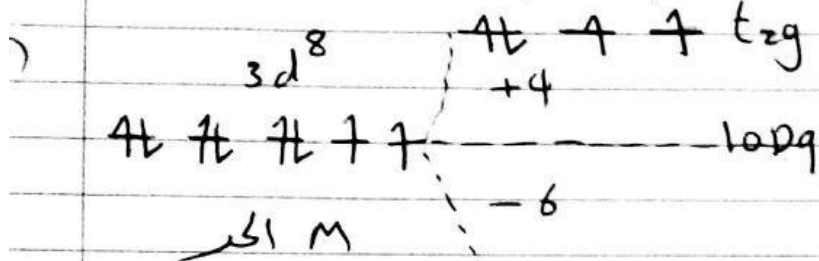 ) 3d⁸ ⥮ ↿ ↿ t₂g
+4
⥮ ⥮ ⥮ ↿ ↿ 10Dq
-6
الى M